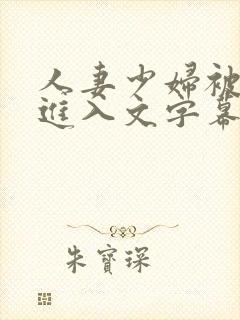 人妻少婦被
進入文字幕
朱寶琛